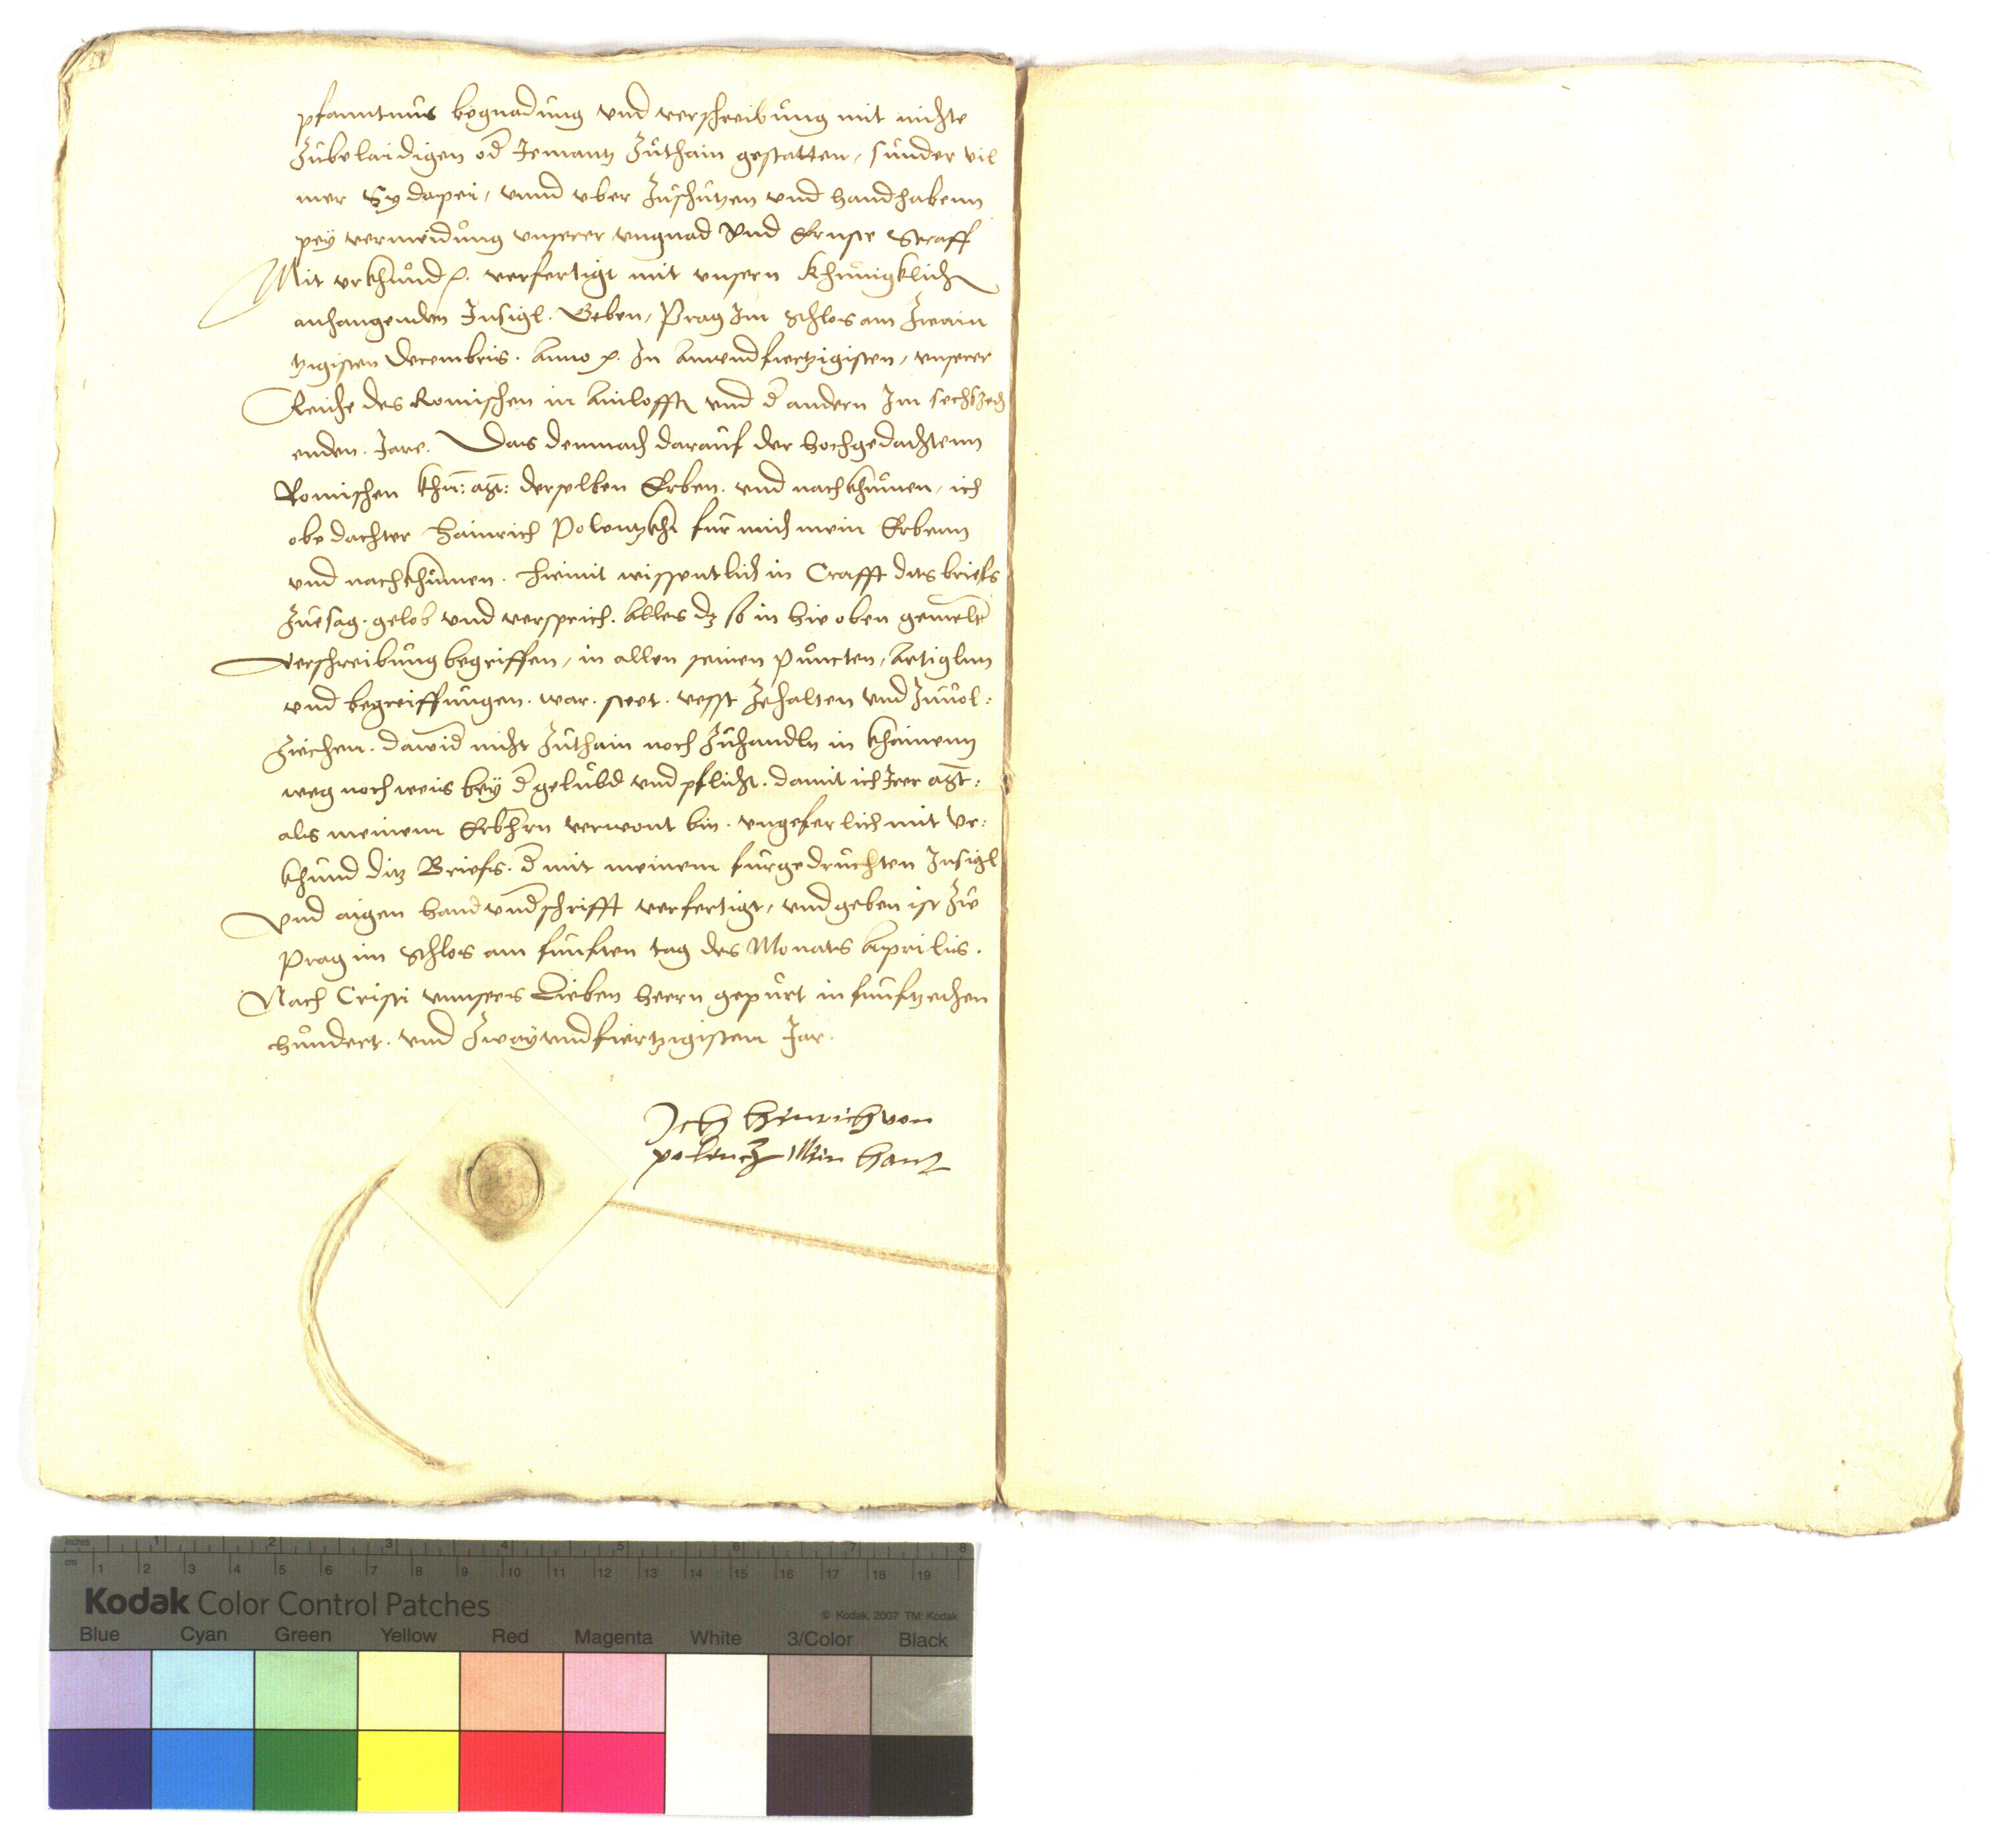 pfanntnus begnadung vnd verschreibung mit nichte
Zubelaidigen od Jemantz Zuthain gestatten, sunder vil
mer Sy dapei, vnnd vber Zuschutzen vnd handhabenn
pey vermeidung vnserer vngnad Vnd Ernste Straff
Mit vrkhund p. verfertigt mit vnsern Khunigklich
anhangenden Insigl. Geben, Prag Im Schlos am Zwain
tzigisten Decembris. Anno p. In Ainvndfiertzigisten, vnserer
Reiche des Romischen in Ainlofften vnd d andern Im sechszeh
enden. Jare. Das demnach darauf der hochgedachtenn
Romischen Khu: Mt: derselben Erben. vnd nachkhumen, ich
obedachter Hainrich Polentzkhi fur mich mein Erbenn
vnd nachkhumen. hiemit wissentlich in Crafft dits briefs
Zuesag. gelob vnd versprich. Alles dz so in hie oben gemelter
Verschreibung begriffen, in allen seinen Puncten, Artiglnn
vnd begreiffungen. war. stet. vesst Zehalten vnd Zuuol:
Ziehen. dawid nicht Zuthain noch Zuhandln in khainenn
weg noch weis bey d gelubd vnd pflicht. damit ich Irer Mt:
als meinem Erbhern verwont bin. vngeferlich mit Vr:
khund ditz Briefs. d mit meinem furgedruchten Insigl
Vnd aigen handundschrifft verfertigt, vnd geben ist Zue
Prag im Schlos am funften tag des Monats Aprilis.
Nach Cristi vnnsers Lieben heern gepurt in funftzechen
hundert. vnd Zwayvndfiertzigistem Jar.
Ich Hinrich von
polencz Min hant
inches 1 2 3 4 5 6 7 8
cm 1 2 3 4 5 6 7 8 9 10 11 12 13 14 15 16 17 18 19
Kodak Color Control Patches
© Kodak, 2007 TM: Kodak
Blue Cyan Green Yellow Red Magenta White 3/Color Black